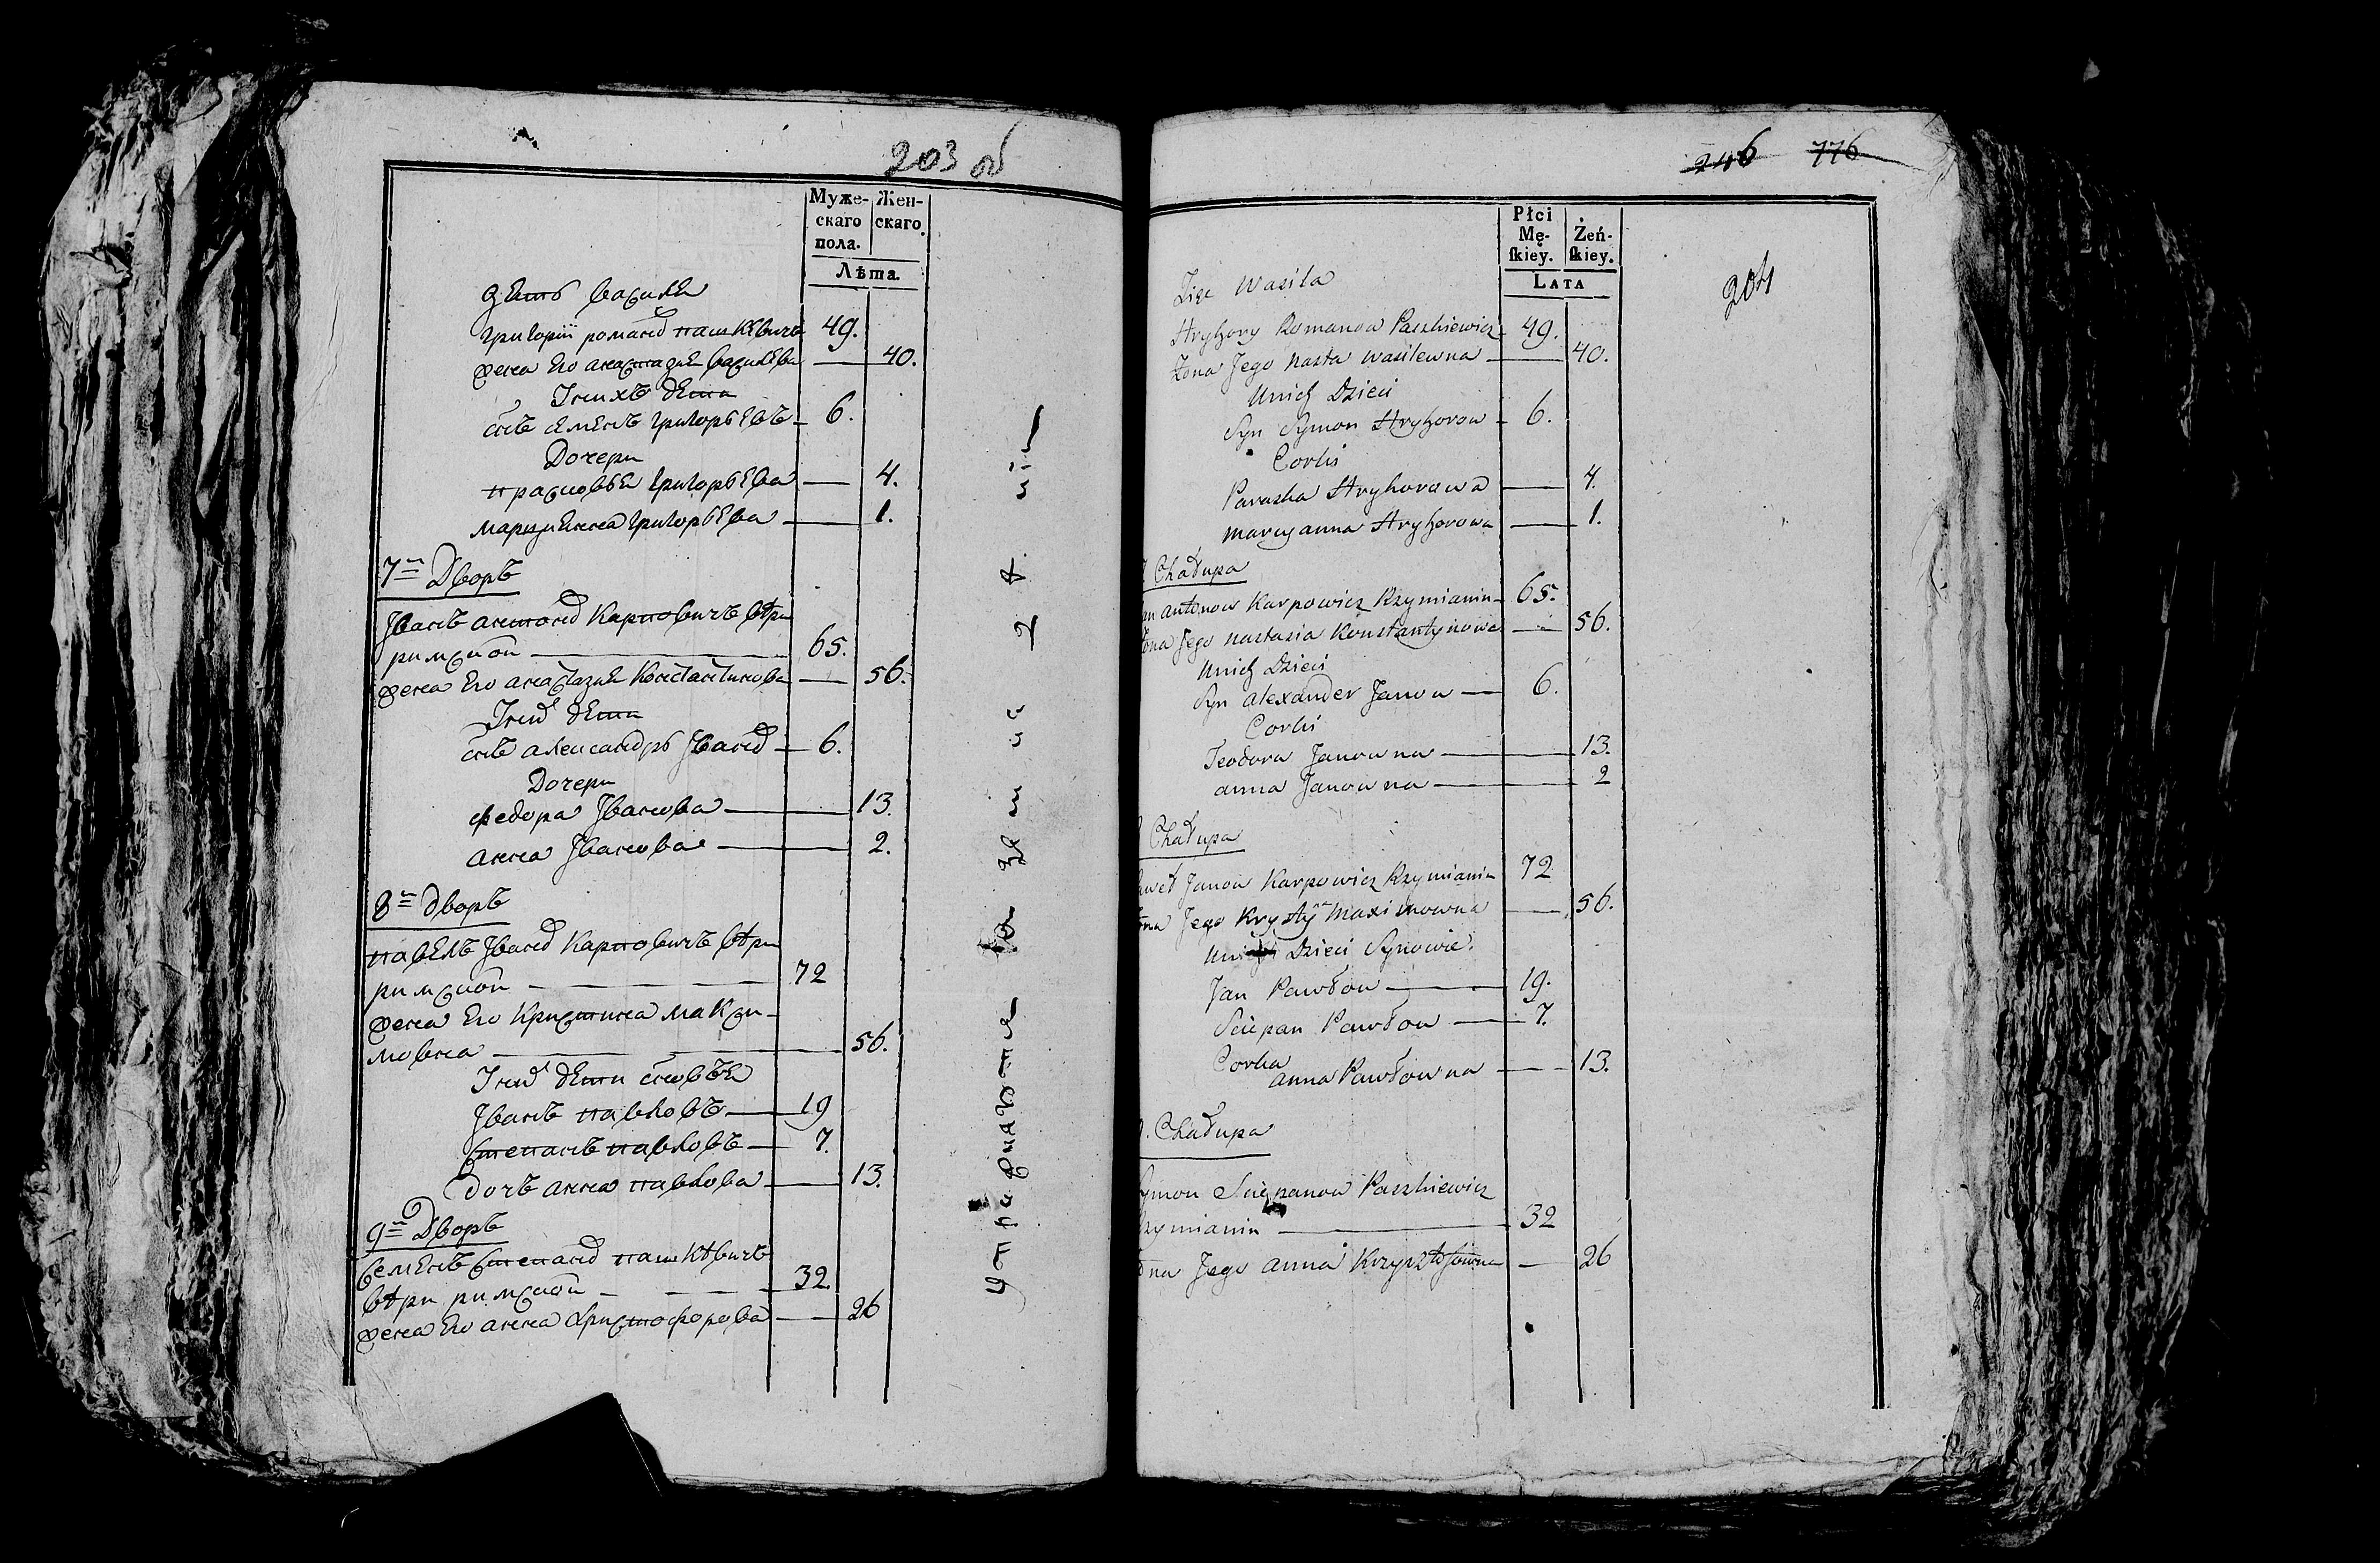 203 об
Муже- Жен-
скаго скаго.
пола.
Лѣта.
Зеть Василя
Григорiй романов пашкевичъ 49.
жена Его анастазия василева — 40.
Унихъ дети
сынъ семенъ григорьевъ — 6.
Дочери
прасковья григорьева — 4.
марциянна григорьева — 1.
7й Дворъ
Иванъ антонов Карповичъ вѣры
римской — 65.
жена Его анастазия Константинова — 56.
Уних дети
сынъ александръ Иванов — 6.
Дочери
федора Иванова — 13.
анна Иванова — 2.
8й дворъ
павелъ Иванов Карповичъ вѣры
римской — 72
жена Его Кристина макси-
мовна — 56.
Уних дети сыновья
Иванъ павловъ — 19
Степанъ павловъ — 7.
Дочъ анна павлова — 13.
9й Дворъ
Семенъ степанов пашкѣвичъ
вѣры римской — 32.
жена Его анна христофорова — 26
246 776
204
Płci
Mę- Żeń-
ſkiey. ſkiey.
LATA
Zięc Wasila
Hryhory Romanow Paszkiewicz 49.
Żona Jego Nasta Wasilewna — 40.
Unich Dzieci
Syn Symon Hryhorow — 6.
Corki
Paraska Hryhorowa — 4.
Marcyanna Hryhorowa — 1.
Chałupa
antonow Karpowicz Rzymianin — 65.
Jego Nastazia Konstantynowa — 56.
Unich Dzieci
Syn Alexander Janow — 6.
Corki
Teodora Janowna — 13.
anna Janowna — 2
Chałupa
Janow Karpowicz Rzymianin 72
Jego Krysty na Maximowna — 56.
Unich Dzieci Synowie.
Jan Pawłow — 19.
Sciepan Pawłow — 7.
Corka
anna Pawłowna — 13.
Chałupa
Sciepanow Paszkiewicz
— 32
Jego anna Krzysztofowna — 26